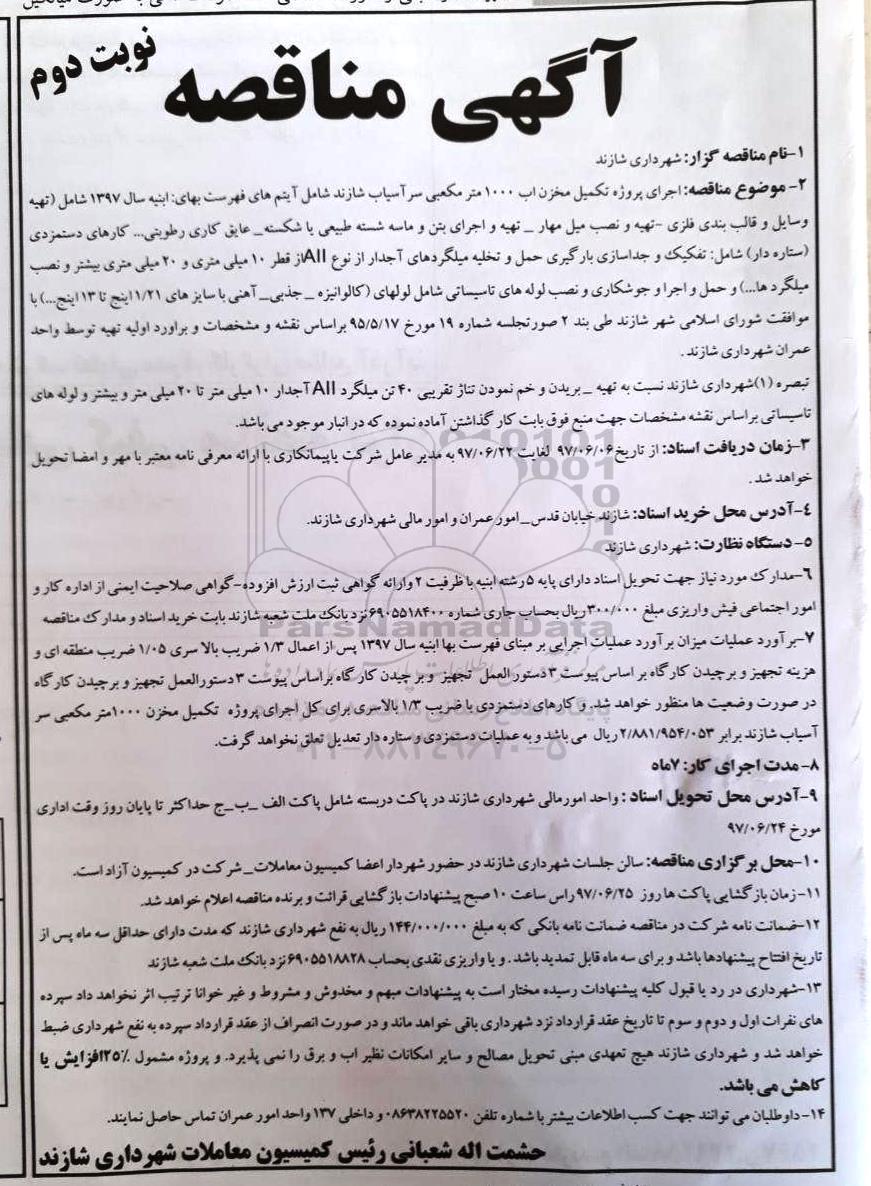 نوبت دوم
آگهی مناقصه
۱-نام مناقصه گزار: شهرداری شازند
۲- موضوع مناقصه: اجرای پروژه تکمیل مخزن اب ۱۰۰۰ متر مکعبی سر آسیاب شازند شامل آیتم های فهرست بهای: ابنیه سال ۱۳۹۷ شامل (تهیه
وسایل و قالب بندی فلزی -تهیه و نصب میل مهار _ تهیه و اجرای بتن و ماسه شسته طبیعی یا شکسته_ عایق کاری رطوبتی... کارهای دستمزدی
(ستاره دار) شامل: تفکیک و جداسازی بارگیری حمل و تخلیه میلگردهای آجدار از نوع AII از قطر ۱۰ میلی متری و ۲۰ میلی متری بیشتر و نصب
میلگرد ها...) و حمل و اجرا و جوشکاری و نصب لوله های تاسیساتی شامل لولهای (کالوانیزه _ جذبی_ آهنی با سایز های ۱/۲۱ اینچ تا ۱۳ اینچ...) با
موافقت شورای اسلامی شهر شازند طی بند ۲ صورتجلسه شماره ۱۹ مورخ ۹۵/۵/۱۷ براساس نقشه و مشخصات و براورد اولیه تهیه توسط واحد
عمران شهرداری شازند .
تبصره (۱)شهرداری شازند نسبت به تهیه _ بریدن و خم نمودن تناژ تقریبی ۴۰ تن میلگرد AII آجدار ۱۰ میلی متر تا ۲۰ میلی متر و بیشتر و لوله های
تاسیساتی براساس نقشه مشخصات جهت منبع فوق بابت کار گذاشتن آماده نموده که در انبار موجود می باشد.
۳-زمان دریافت اسناد: از تاریخ ۹۷/۰۶/۰۶ لغایت ۹۷/۰۶/۲۲ به مدیر عامل شرکت یاپیمانکاری با ارائه معرفی نامه معتبر با مهر و امضا تحویل
خواهد شد .
۴-آدرس محل خرید اسناد: شازند خیابان قدس_ امور عمران و امور مالی شهرداری شازند.
۵- دستگاه نظارت: شهرداری شازند
۶-مدارک مورد نیاز جهت تحویل اسناد دارای پایه ۵ رشته ابنیه با ظرفیت ۲ وارائه گواهی ثبت ارزش افزوده-گواهی صلاحیت ایمنی از اداره کار و
امور اجتماعی فیش واریزی مبلغ ۳۰۰/۰۰۰ ریال بحساب جاری شماره ۶۹۰۵۵۱۸۴۰۰ نزد بانک ملت شعبه شازند بابت خرید اسناد و مدارک مناقصه
۷-برآورد عملیات میزان برآورد عملیات اجرایی بر مبنای فهرست بها ابنیه سال ۱۳۹۷ پس از اعمال ۱/۳ ضریب بالا سری ۱/۰۵ ضریب منطقه ای و
هزینه تجهیز و برچیدن کارگاه بر اساس پیوست ۳ دستورالعمل تجهیز و برچیدن کارگاه براساس پیوست ۳ دستورالعمل تجهیز و برچیدن کارگاه
در صورت وضعیت ها منظور خواهد شد. و کارهای دستمزدی با ضریب ۱/۳ بالاسری برای کل اجرای پروژه تکمیل مخزن ۱۰۰۰متر مکعبی سر
آسیاب شازند برابر ۲/۸۸۱/۹۵۴/۰۵۳ ریال می باشد و به عملیات دستمزدی و ستاره دار تعدیل تعلق نخواهد گرفت.
۸- مدت اجرای کار: ۷ماه
۹-آدرس محل تحویل اسناد : واحد امورمالی شهرداری شازند در پاکت دربسته شامل پاکت الف _ب_ج حداکثر تا پایان روز وقت اداری
مورخ ۹۷/۰۶/۲۴
۱۰-محل برگزاری مناقصه: سالن جلسات شهرداری شازند در حضور شهردار اعضا کمیسیون معاملات_شرکت در کمیسیون آزاد است.
۱۱-زمان بازگشایی پاکت ها روز ۹۷/۰۶/۲۵ راس ساعت ۱۰ صبح پیشنهادات بازگشایی قرائت و برنده مناقصه اعلام خواهد شد.
۱۲-ضمانت نامه شرکت در مناقصه ضمانت نامه بانکی که به مبلغ ۱۴۴/۰۰۰/۰۰۰ ریال به نفع شهرداری شازند که مدت دارای حداقل سه ماه پس از
تاریخ افتتاح پیشنهادها باشد و برای سه ماه قابل تمدید باشد . و یا واریزی نقدی بحساب ۶۹۰۵۵۱۸۸۲۸ نزد بانک ملت شعبه شازند
۱۳-شهرداری در رد یا قبول کلیه پیشنهادات رسیده مختار است به پیشنهادات مبهم و مخدوش و مشروط و غیر خوانا ترتیب اثر نخواهد داد سپرده
های نفرات اول و دوم و سوم تا تاریخ عقد قرارداد نزد شهرداری باقی خواهد ماند و در صورت انصراف از عقد قرارداد سپرده به نفع شهرداری ضبط
خواهد شد و شهرداری شازند هیچ تعهدی مبنی تحویل مصالح و سایر امکانات نظیر اب و برق را نمی پذیرد. و پروژه مشمول ۲۵٪ افزایش یا
کاهش می باشد.
۱۴-داوطلبان می توانند جهت کسب اطلاعات بیشتر با شماره تلفن ۰۸۶۳۸۲۲۵۵۲۰ و داخلی ۱۳۷ واحد امور عمران تماس حاصل نمایند.
حشمت اله شعبانی رئیس کمیسیون معاملات شهرداری شازند
ParsNamadData